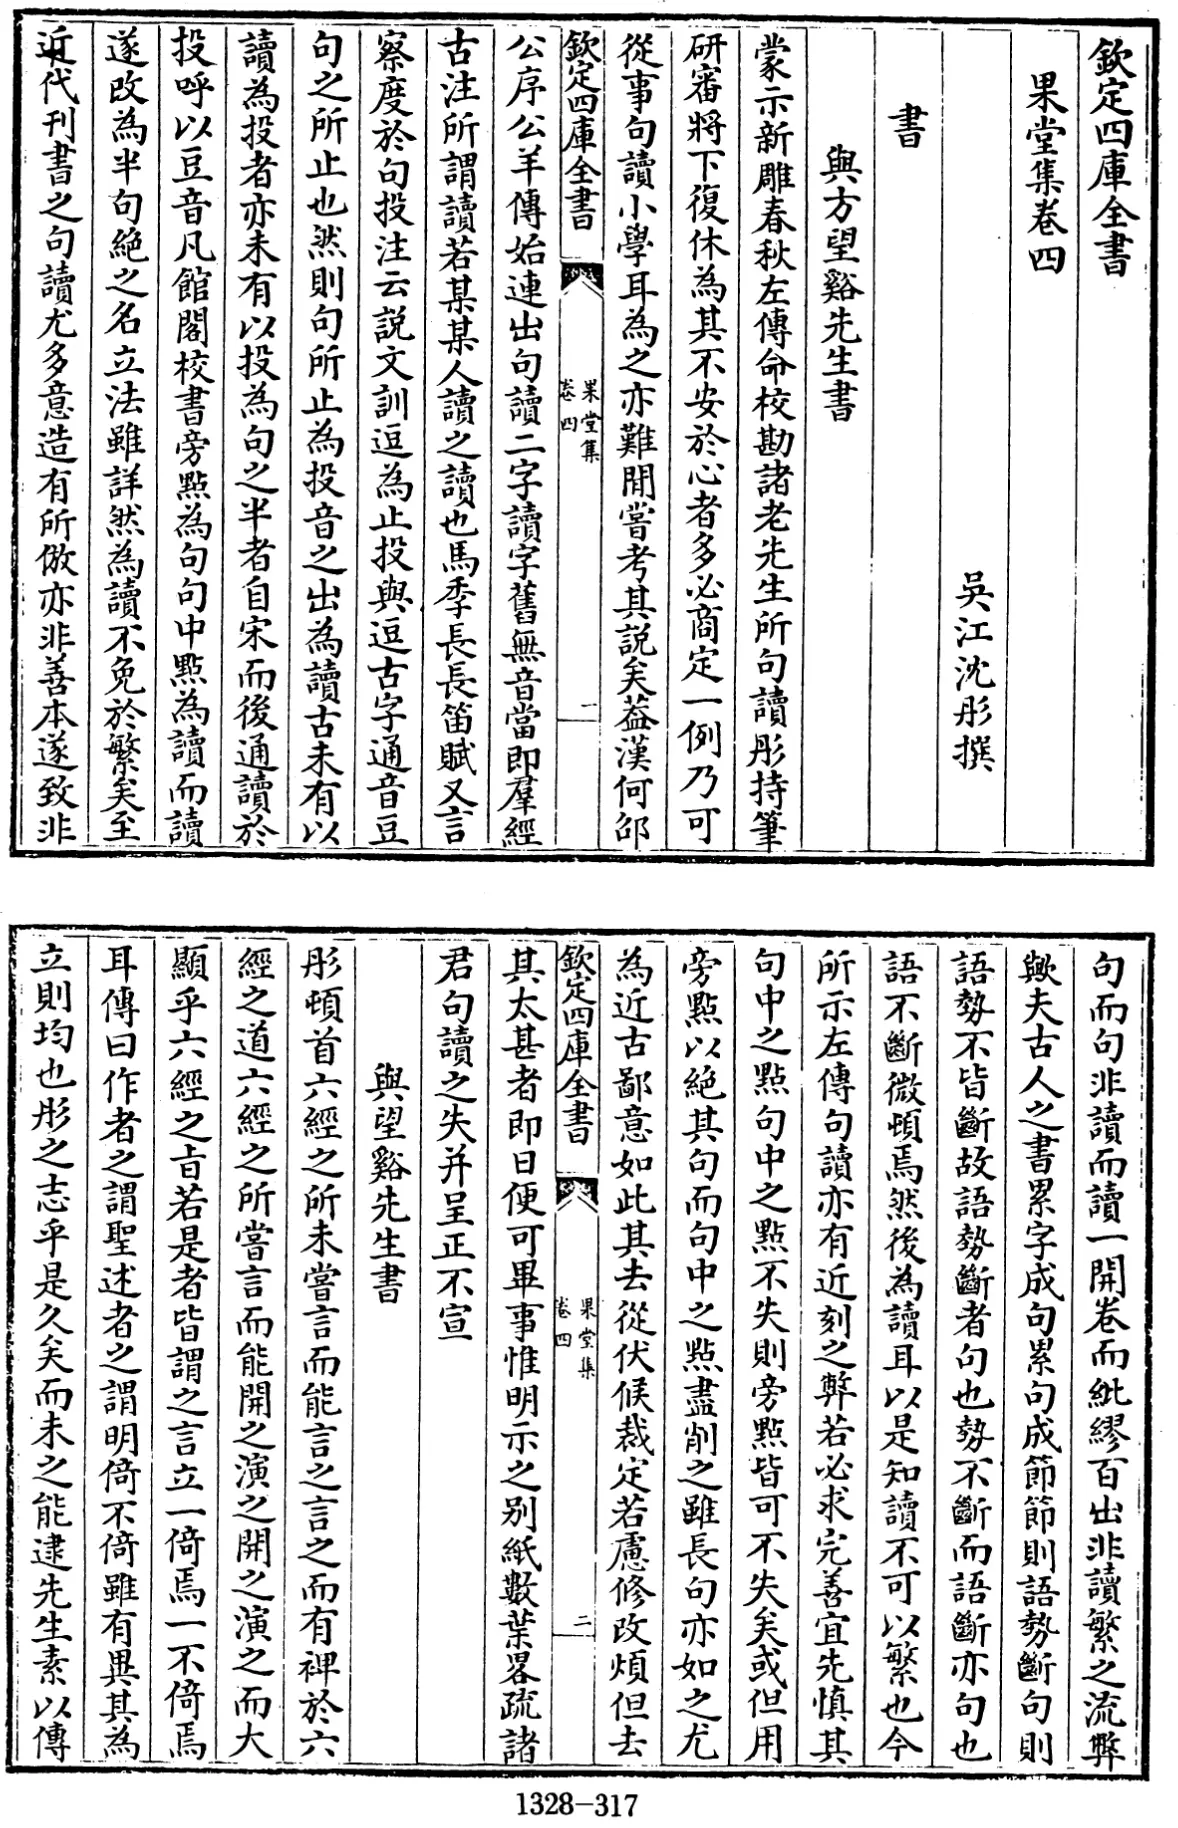 欽定四庫全書
果堂集卷四
吳江沈彤撰
書
與方望谿先生書
蒙示新雕春秋左傳命校勘諸老先生所句讀彤持筆
研審將下復休為其不安於心者多必商定一例乃可
從事句讀小學耳為之亦難閒嘗考其説矣葢漢何邵
欽定四庫全書
果堂集
卷四
一
公序公羊傳始連出句讀二字讀字舊無音當即羣經
古注所謂讀若某某人讀之讀也馬季長長笛賦又言
察度於句投注云説文訓逗為止投與逗古字通音豆
句之所止也然則句所止為投音之出為讀古未有以
讀為投者亦未有以投為句之半者自宋而後通讀於
投呼以豆音凡館閣校書旁㸃為句句中㸃為讀而讀
遂改為半句絶之名立法雖詳然為讀不免於繁矣至
近代刊書之句讀尤多意造有所倣亦非善本遂致非
句而句非讀而讀一開卷而紕繆百出非讀繁之流弊
歟夫古人之書累字成句累句成節節則語勢斷句則
語勢不皆斷故語勢斷者句也勢不斷而語斷亦句也
語不斷微頓焉然後為讀耳以是知讀不可以繁也今
所示左傳句讀亦有近刻之弊若必求完善宜先慎其
句中之㸃句中之㸃不失則旁㸃皆可不失矣或但用
旁㸃以絶其句而句中之㸃盡削之雖長句亦如之尤
為近古鄙意如此其去從伏候裁定若慮修改煩但去
欽定四庫全書
果堂集
卷四
二
其太甚者即日便可畢事惟明示之别紙數葉畧疏諸
君句讀之失并呈正不宣
與望谿先生書
彤頓首六經之所未嘗言而能言之言之而有裨於六
經之道六經之所嘗言而能開之演之開之演之而大
顯乎六經之㫖若是者皆謂之言立一倚焉一不倚焉
耳傳曰作者之謂聖述者之謂明倚不倚雖有異其為
立則均也彤之志乎是久矣而未之能逮先生素以傳
1328-317